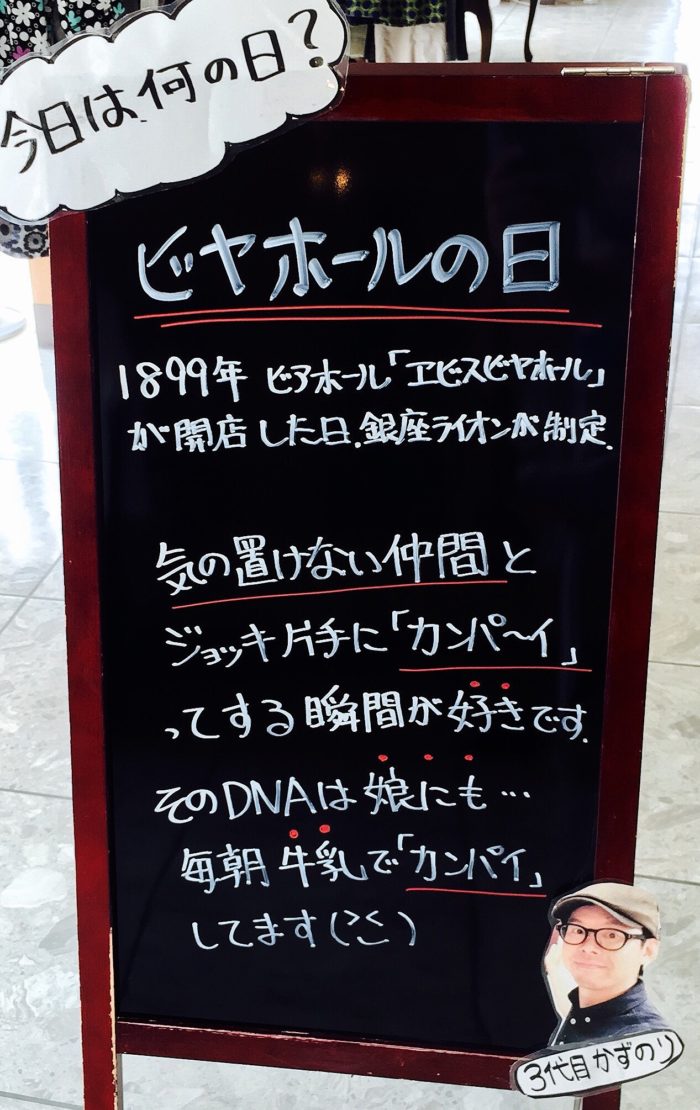 今日は何の日?
ビヤホールの日
1899年 ビアホール「ヱビスビヤホール」
が開店した日.銀座ライオンが制定.
気の置けない仲間と
ジョッキ片手に「カンパ〜イ」
ってする瞬間が好きです.
そのDNAは娘にも…
毎朝牛乳で「カンパイ」
してます(>く)
3代目かずのり